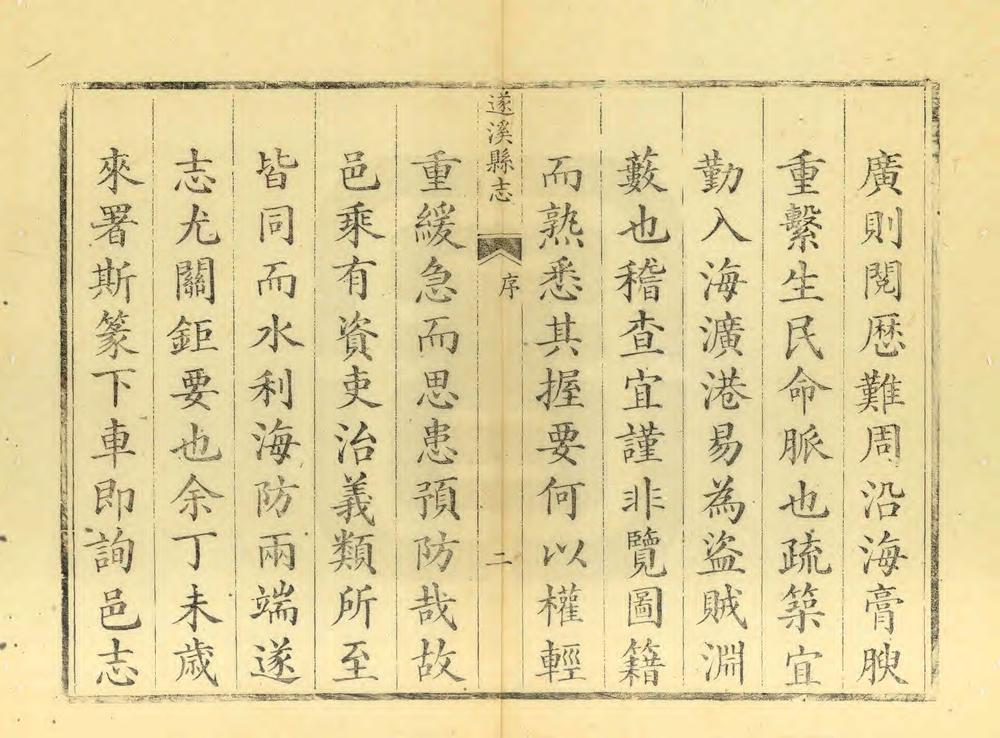 廣則閱歷難周沿海膏腴
重繫生民命脈也疏築宜
勤入海濵港易為盜賊淵
藪也稽查宜謹非覽圖籍
而熟悉其握要何以權輕
遂溪縣志
序
二
重緩急而思患預防哉故
邑乘有資吏治義類所至
皆同而水利海防兩端遂
志尤關鉅要也余丁未歲
來署斯篆下車即詢邑志